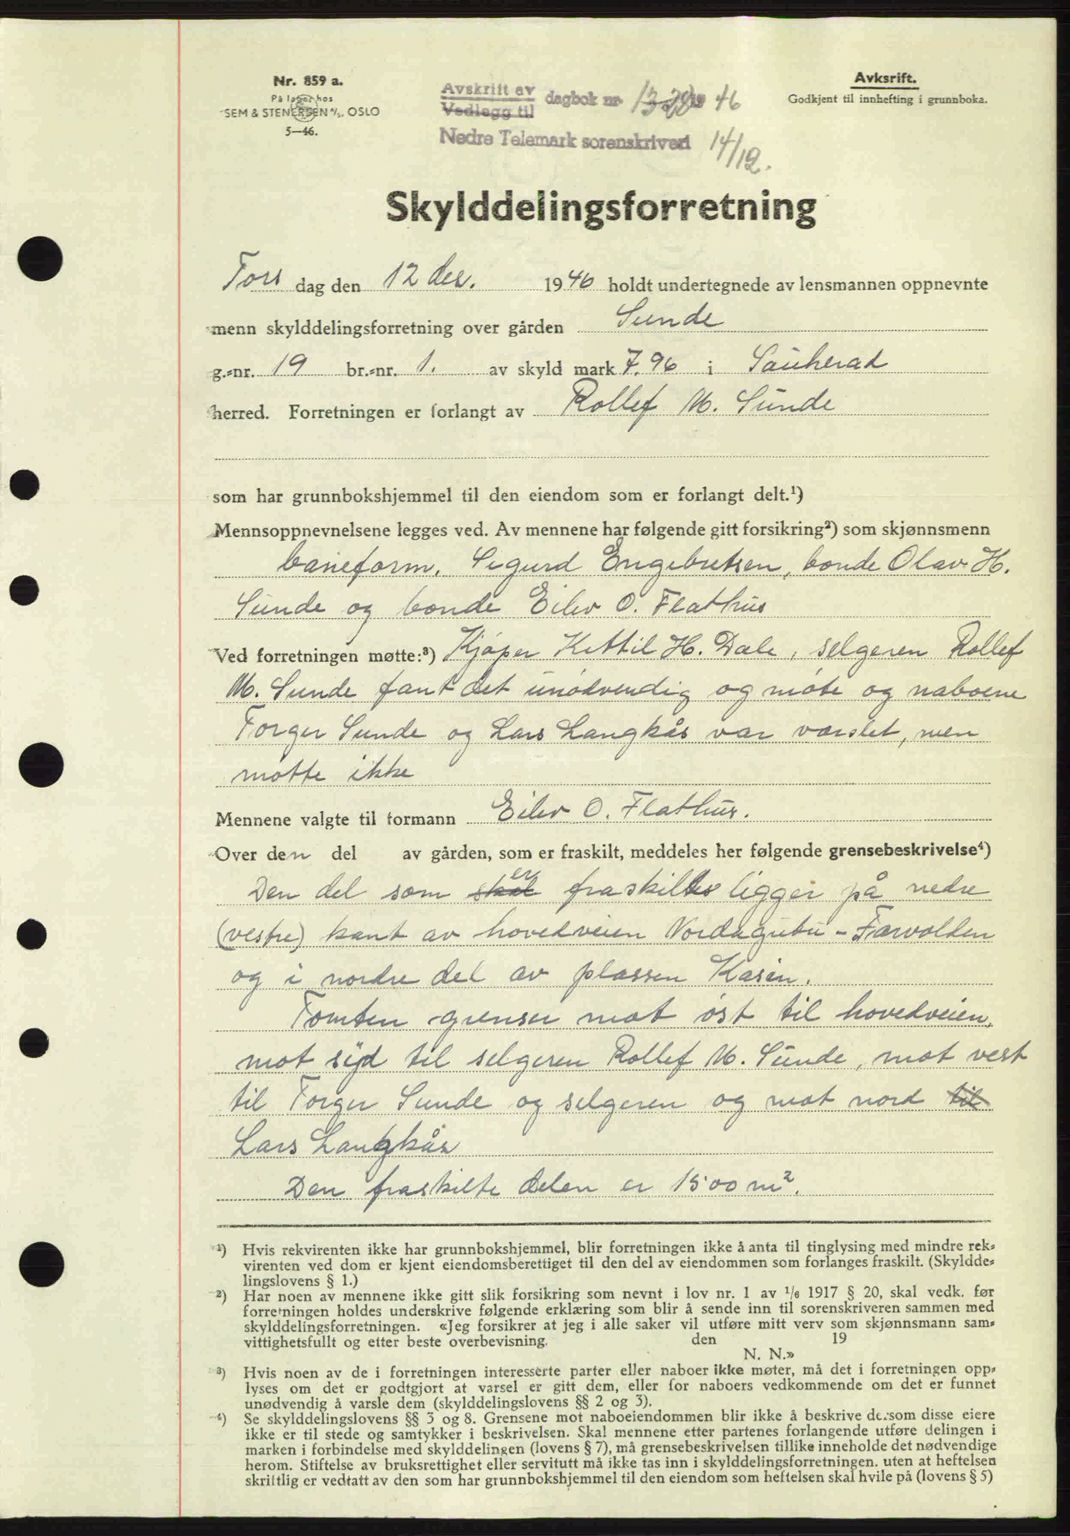 Nr. 859 a.
På lager hos
SEM & STENERSEN A/S, OSLO
5—46.
Avskrift av
Vedlegg til
dagbok nr 1346
Nedre Telemark sorenskriveri 14/12.
Avksrift.
Godkjent til innhefting i grunnboka.
Skylddelingsforretning
Tors dag den 12 des. 1946 holdt undertegnede av lensmannen oppnevnte
menn skylddelingsforretning over gården Sunde
g.-nr. 19 br.-nr. 1. av skyld mark 7.96 i Sauherad
herred. Forretningen er forlangt av Rollef M. Sunde
som har grunnbokshjemmel til den eiendom som er forlangt delt.¹)
Mennsoppnevnelsene legges ved. Av mennene har følgende gitt forsikring²) som skjønnsmenn
baneform. Sigurd Engebretsen, bonde Olav H.
Sunde og bonde Eilev O. Flathus
Ved forretningen møtte:³) Kjøper Kettil H. Dale, selgeren Rollef
M. Sunde fant det unødvendig og møte og naboene
Torger Sunde og Lars Langkås var varslet, men
møtte ikke
Mennene valgte til formann Eilev O. Flathus.
Over den del av gården, som er fraskilt, meddeles her følgende grensebeskrivelse⁴)
Den del som skal er fraskiltes ligger på nedre
(vestre) kant av hovedveien Nordagutu - Farvolden
og i nordre del av plassen Kåsin.
Tomten grenser mot øst til hovedveien,
mot syd til selgeren Rollef M. Sunde, mot vest
til Torger Sunde og selgeren og mot nord til
Lars Langkås
Den fraskilte delen er 1500 m².
¹) Hvis rekvirenten ikke har grunnbokshjemmel, blir forretningen ikke å anta til tinglysing med mindre rek-
virenten ved dom er kjent eiendomsberettiget til den del av eiendommen som forlanges fraskilt. (Skyldde-
lingslovens § 1.)
²) Har noen av mennene ikke gitt slik forsikring som nevnt i lov nr. 1 av 1/6 1917 § 20, skal vedk. før
forretningen holdes underskrive følgende erklæring som blir å sende inn til sorenskriveren sammen med
skylddelingsforretningen. «Jeg forsikrer at jeg i alle saker vil utføre mitt verv som skjønnsmann sam-
vittighetsfullt og etter beste overbevisning. den 19
N. N.»
³) Hvis noen av de i forretningen interesserte parter eller naboer ikke møter, må det i forretningen opp-
lyses om det er godtgjort at varsel er gitt dem, eller for naboers vedkommende om det er funnet
unødvendig å varsle dem (skylddelingslovens §§ 2 og 3).
⁴) Se skylddelingslovens §§ 3 og 8. Grensene mot naboeiendommen blir ikke å beskrive dersom disse eiere
ikke er til stede og samtykker i beskrivelsen. Skal mennene etter partenes forlangende utføre delingen i
marken i forbindelse med skylddelingen (lovens § 7), må grensebeskrivelsen tillike inneholde det nødvendige
herom. Stiftelse av bruksrettighet eller servitutt må ikke tas inn i skylddelingsforretningen. uten at heftelsen
skriftlig er vedtatt av den som har grunnbokshjemmel til den eiendom som heftelsen skal hvile på (lovens § 5)